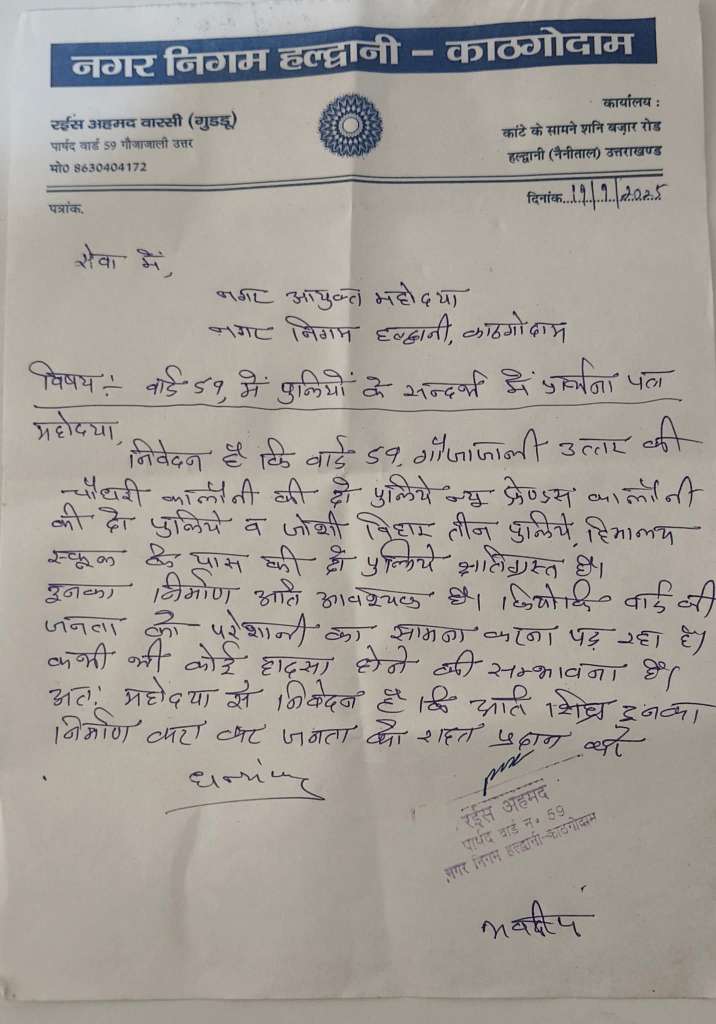 नगर निगम हल्द्वानी – काठगोदाम
रईस अहमद वारसी (गुडडू)
पार्षद वार्ड 59 गौजाजाली उत्तर
मो0 8630404172
कार्यालय :
कांटे के सामने शनि बज़ार रोड
हल्द्वानी (नैनीताल) उत्तराखण्ड
पत्रांक.
दिनांक...19/9/2025
सेवा में,
नगर आयुक्त महोदया
नगर निगम हल्द्वानी, काठगोदाम
विषय :- वार्ड 59, में पुलियों के सन्दर्भ में प्रार्थना पत्र
महोदया,
निवेदन है कि वार्ड 59, गौजाजाली उत्तर की
चौधरी कालौनी की दो पुलिये न्यू फ्रेण्डस कालौनी
की दो पुलिये व जोशी विहार तीन पुलिये, हिमालय
स्कूल के पास की दो पुलिये क्षतिग्रस्त है।
इनका निर्माण अति आवश्यक है। कियोकि वार्ड की
जनता को परेशानी का सामना करना पड़ रहा है।
कभी भी कोई हादसा होने की सम्भावना है।
अत: महोदया से निवेदन है कि अति शिघ्र इनका
निर्माण करा कर जनता को राहत प्रदान करे
धन्यवाद
रईस अहमद
पार्षद वार्ड न. 59
नगर निगम हल्द्वानी-काठगोदाम
भवदीय